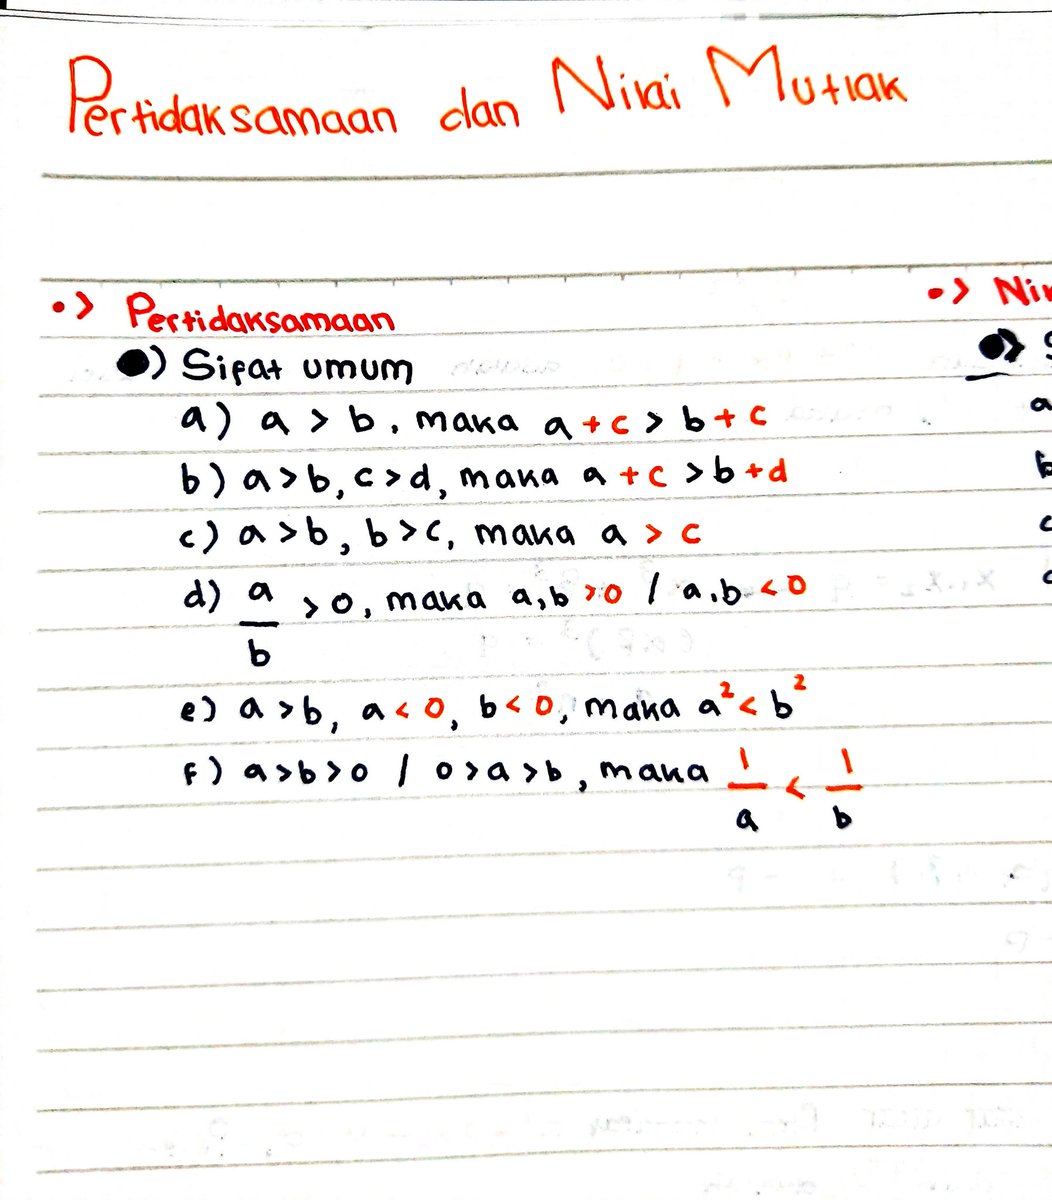 Pertidaksamaan dan Nilai Mutlak
•> Pertidaksamaan
●) Sifat umum
a) a > b, maka a + c > b + c
b) a > b, c > d, maka a + c > b + d
c) a > b, b > c, maka a > c
d) a/b > 0, maka a, b > 0 / a, b < 0
e) a > b, a < 0, b < 0, maka a² < b²
f) a > b > 0 / 0 > a > b, maka 1/a < 1/b
•>
●>
a
b
c